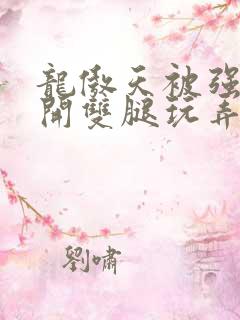 龍傲天被强
開雙腿玩弄
劉嘯